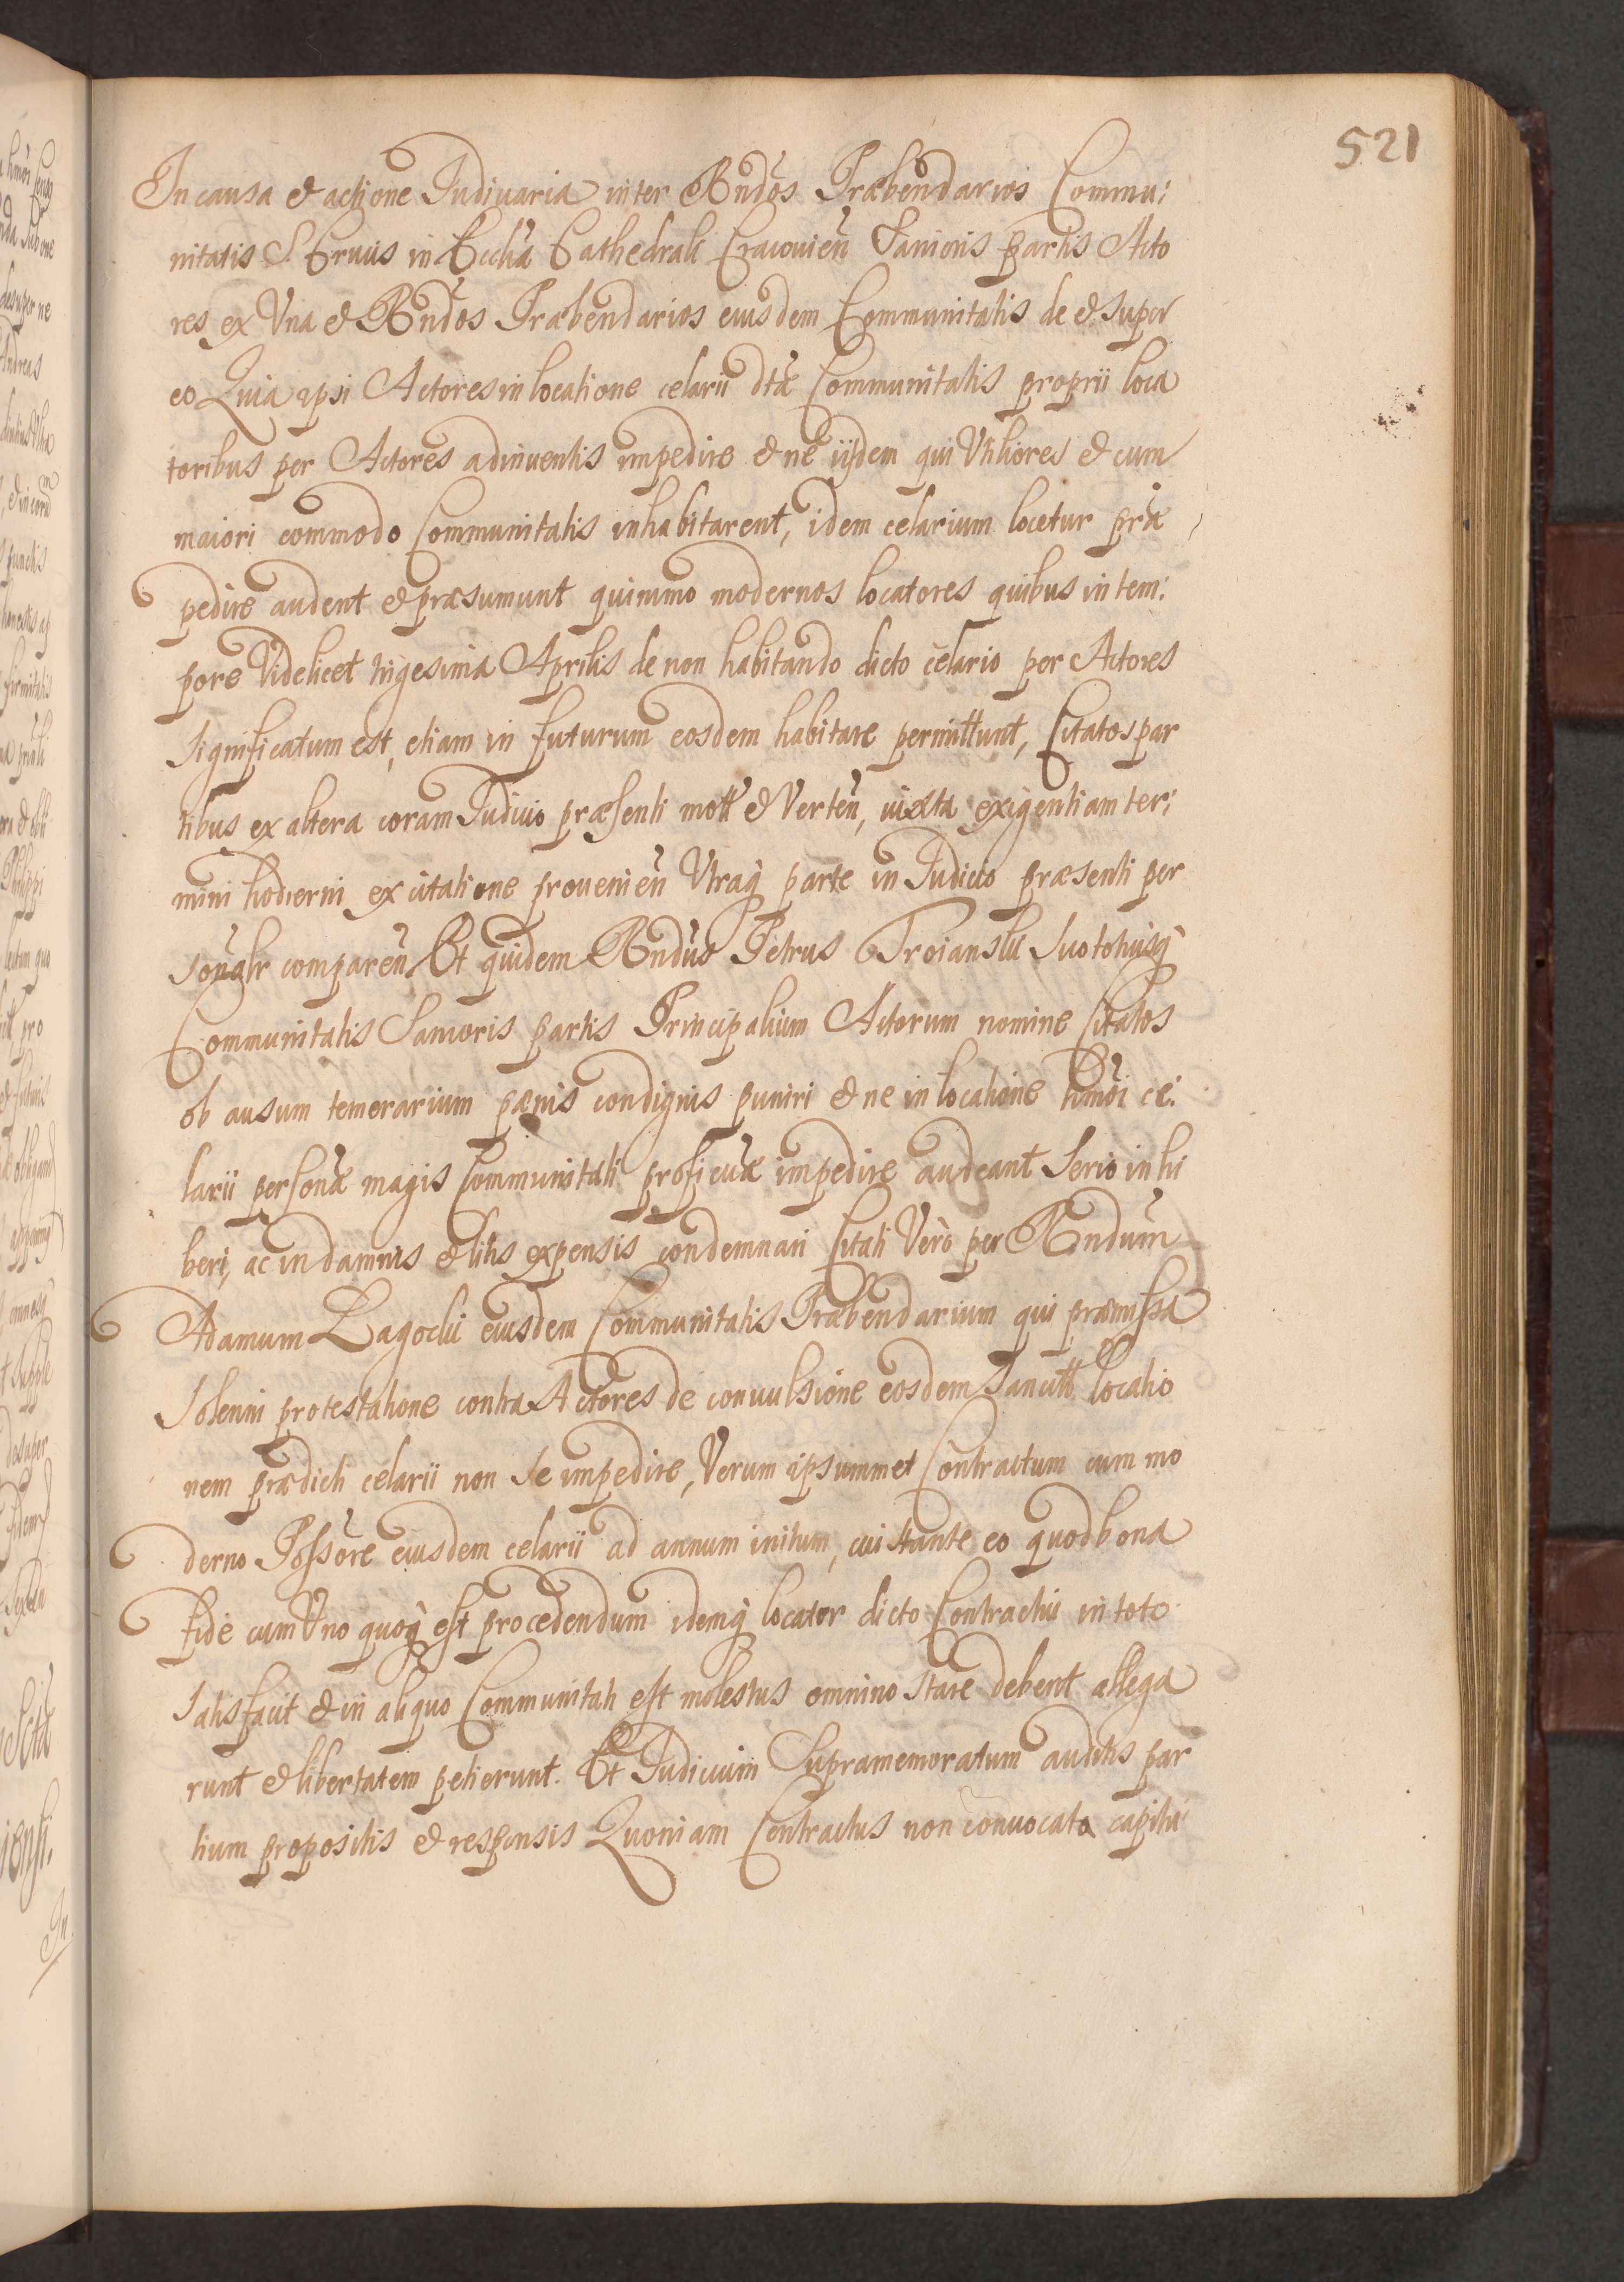 521
In causa et actione Iudiciaria inter Rndos Præbendarios Commu:
nitatis S. Crucis in Ecclia Cathedrali Cracouien Sanioris partis Acto
res ex Vna et Rndos Præbendarios eiusdem Communitatis de et super
eo Quia ipsi Actores in locatione celarii dtæ Communitatis proprii loca
toribus per Actores adinuentis impedire et ne iidem qui Vtiliores et cum
maiori commodo Communitatis inhabitarent, idem celarium locetur præ
pedire audent et præsumunt quinimo modernos locatores quibus in tem:
pore Videlicet trigesima Aprilis de non habitando dicto celario per Actores
significatum est, etiam in futurum eosdem habitare permittunt, Citatos par
tibus ex altera coram Iudicio præsenti mott et Verten, iuxta exigentiam ter:
mini hodierni ex citatione prouenien Vtraq parte in Iudicio præsenti per
sonalr comparen Et quidem Rndus Petrus Troianski suo totiusq
Communitatis Sanioris partis Principalium Actorum nomine Citatos
ob ausum temerarium pænis condignis puniri et ne in locatione hmoi ce:
larii personæ magis Communitati proficuæ impedire audeant Serio inhi
beri, ac in damnis et litis expensis condemnari Citati Verò per Rndum
Adamum Lagocki eiusdem Communitatis Præbendarium qui præmissa
solenni protestatione contra Actores de conuulsione eosdem locatio
nem prædicti celarii non se impedire, Verum ipsummet Contractum cum mo
derno Possore eiusdem celarii ad annum initum, cui stante eo quod bona
fide cum Vno quoq est procedendum idemq locator dicto Contractui in toto
satisfacit et in aliquo Communitati est molestus omnino stare debent allega
runt et libertatem petierunt. Et Iudicium Supramemoratum auditis par
tium propositis et responsis Quoniam Contractus non conuocato capitu